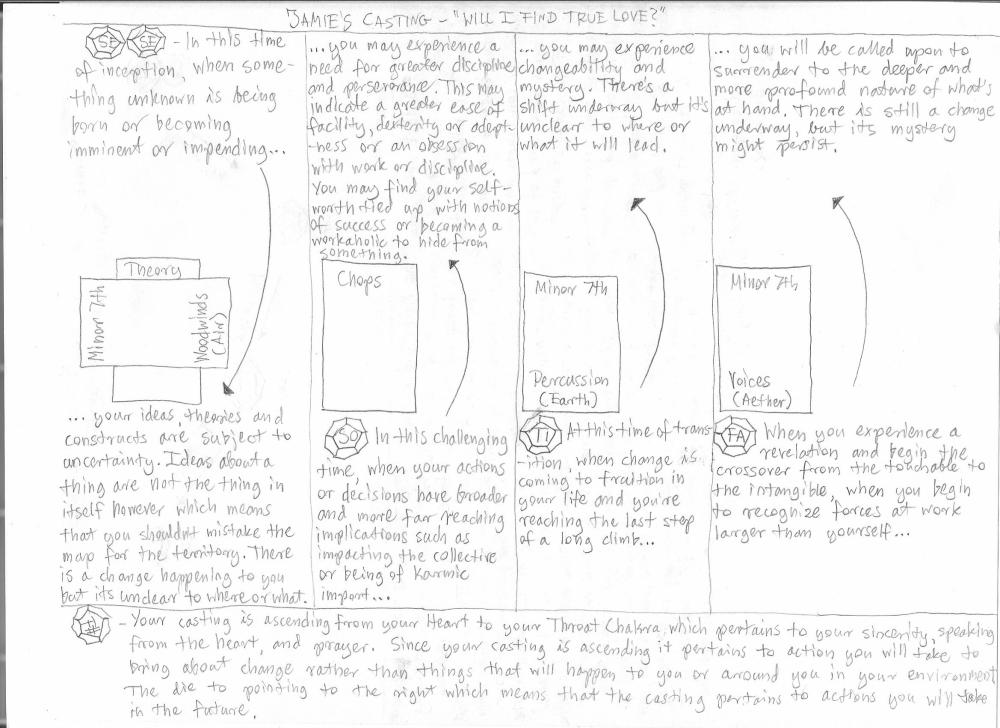 JAMIE'S CASTING – "WILL I FIND TRUE LOVE?"
SE SE – In this time
of inception, when some-
thing unknown is being
born or becoming
imminent or impending...
Theory
Minor 7th
Woodwinds
(Air)
... your ideas, theories and
constructs are subject to
uncertainty. Ideas about a
thing are not the thing in
itself however which means
that you shouldn't mistake the
map for the territory. There
is a change happening to you
but its unclear to where or what.
...you may experience a
need for greater discipline
and perserverance. This may
indicate a greater ease of
facility, dexterity or adept-
-ness or an obsession
with work or discipline.
You may find your self-
worth tied up with notions
of success or becoming a
workaholic to hide from
something.
Chops
SO In this challenging
time, when your actions
or decisions have broader
and more far reaching
implications such as
impacting the collective
or being of Karmic
import...
... you may experience
changeability and
mystery. There's a
shift underway but it's
unclear to where or
what it will lead.
Minor 7th
Percussion
(Earth)
TI At this time of trans-
-ition, when change is
coming to fruition in
your life and you're
reaching the last step
of a long climb...
... you will be called upon to
surrender to the deeper and
more profound nature of what's
at hand. There is still a change
underway, but its mystery
might persist.
Minor 7th
Voices
(Aether)
FA When you experience a
revelation and begin the
crossover from the touchable to
the intangible, when you begin
to recognize forces at work
larger than yourself...
– Your casting is ascending from your Heart to your Throat Chakra, which pertains to your sincerity, speaking
from the heart, and prayer. Since your casting is ascending it pertains to action you will take to
bring about change rather than things that will happen to you or around you in your environment
The die to pointing to the right which means that the casting pertains to actions you will take
in the future.